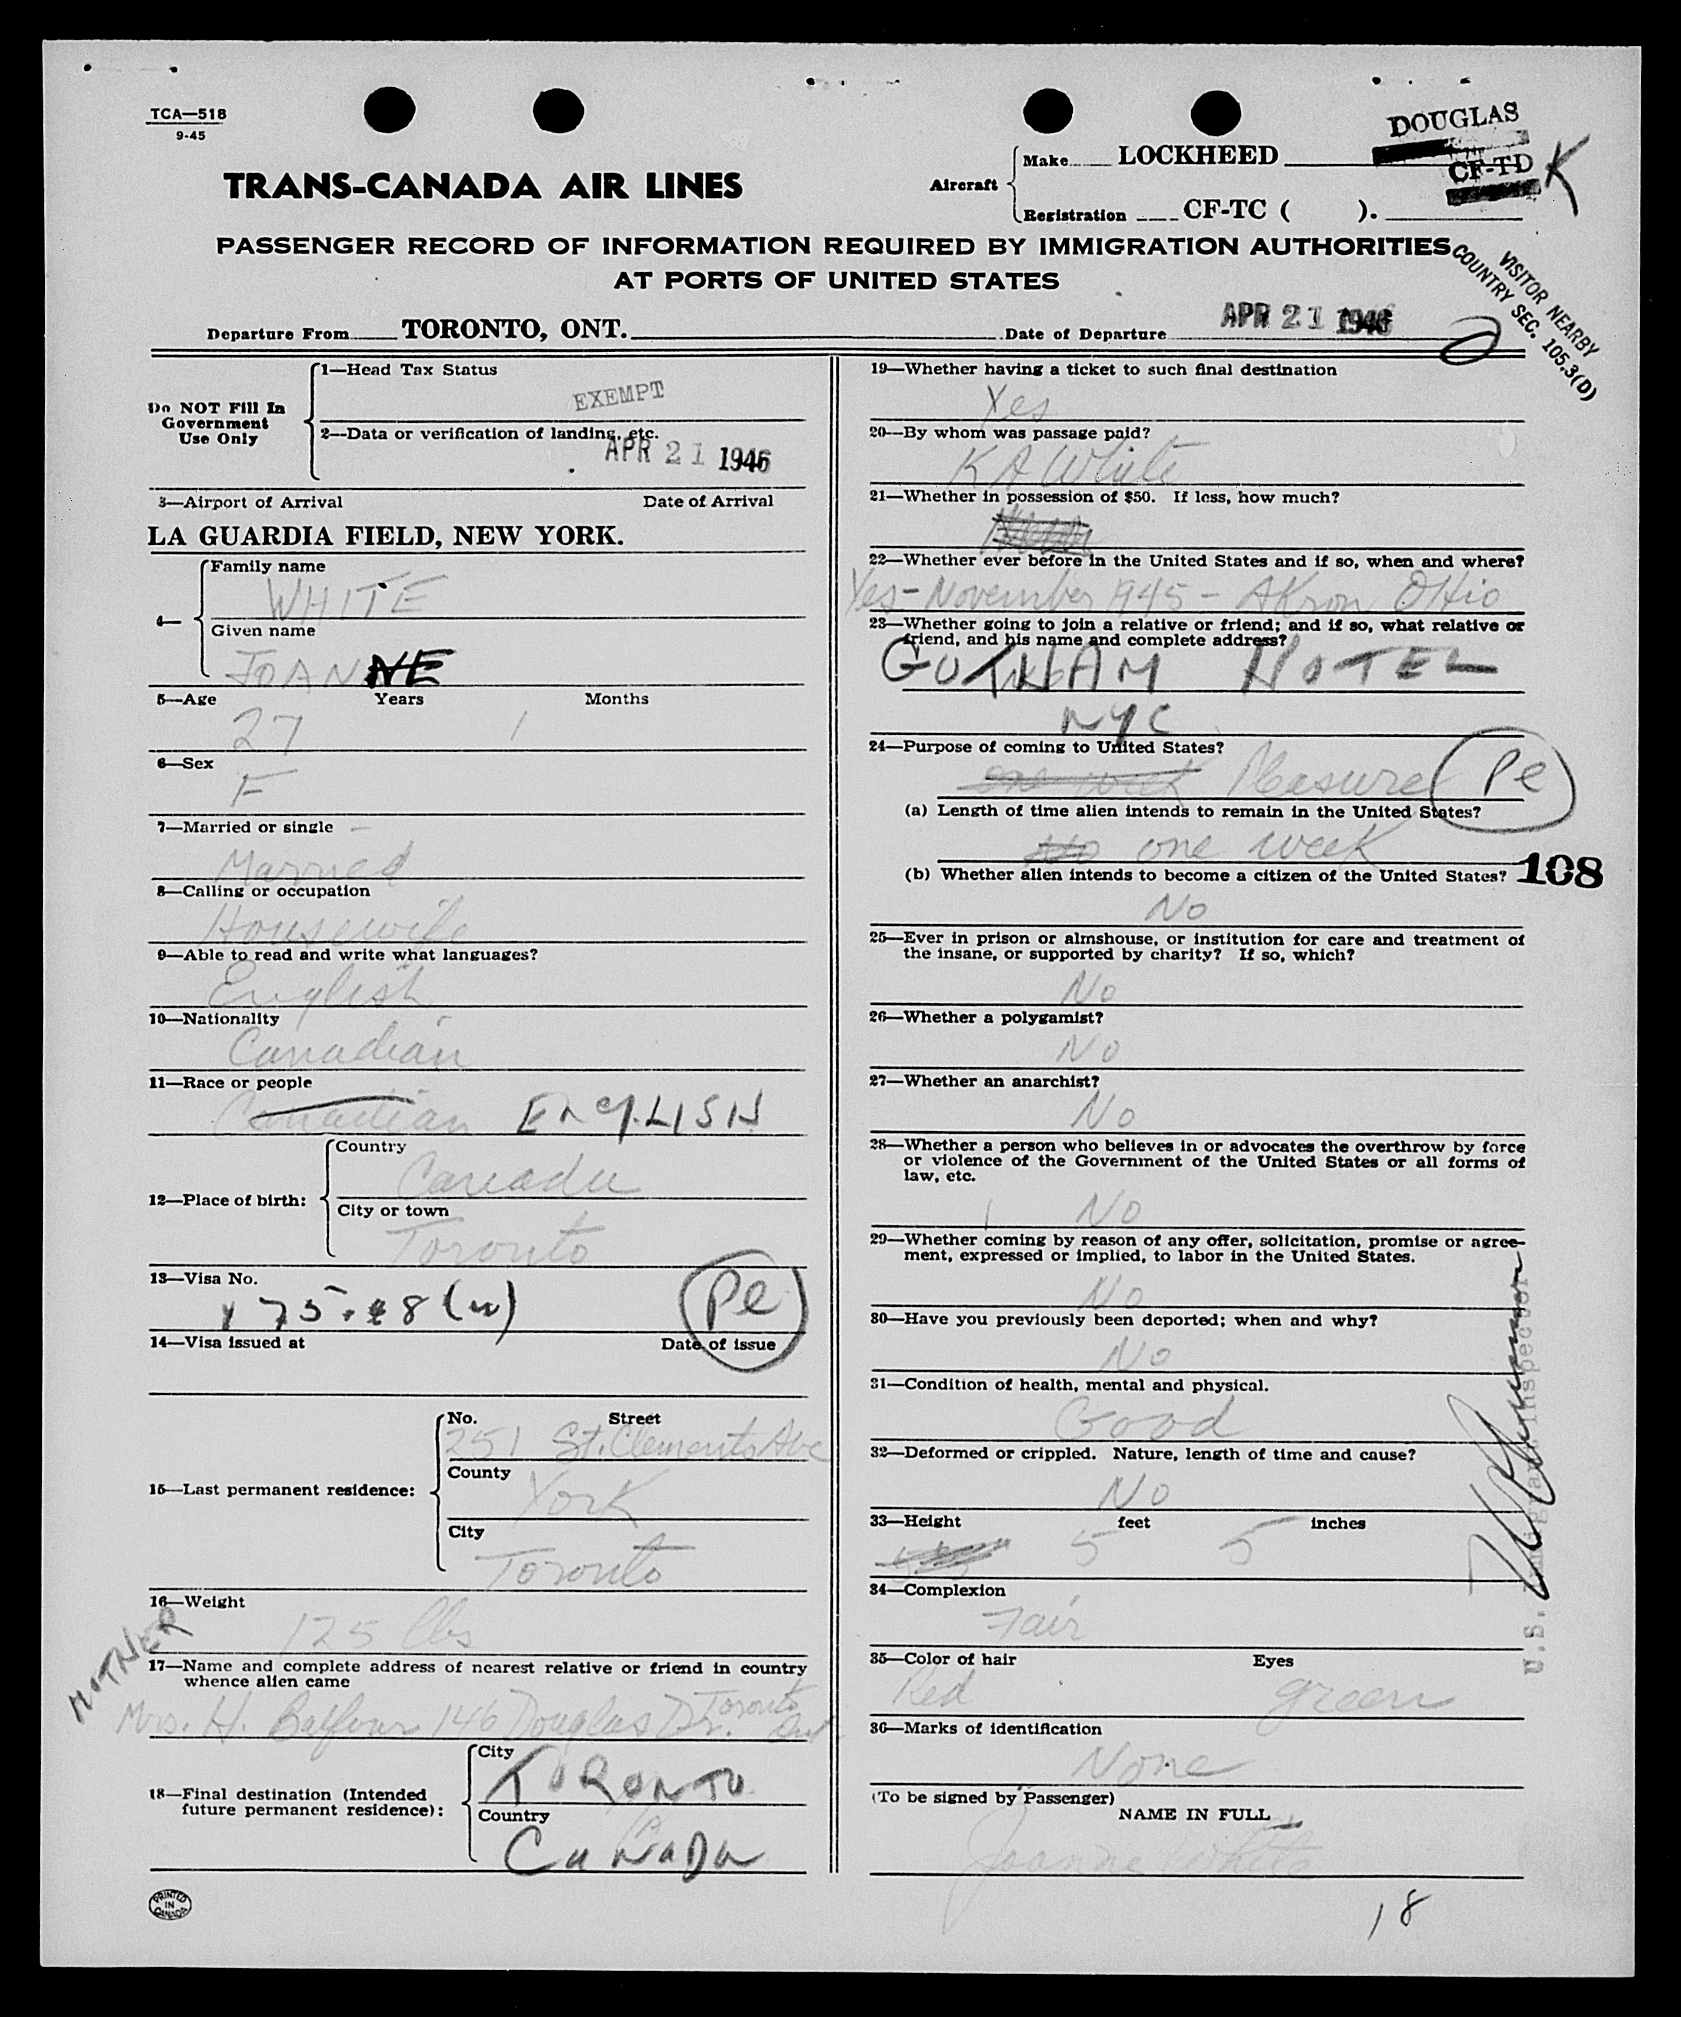 TCA—518
9-45
TRANS-CANADA AIR LINES
Aircraft
Make LOCKHEED
DOUGLAS
Registration CF-TC ( ).
CF-TD K
PASSENGER RECORD OF INFORMATION REQUIRED BY IMMIGRATION AUTHORITIES
AT PORTS OF UNITED STATES
VISITOR NEARBY
COUNTRY SEC. 105.3(D)
Departure From TORONTO, ONT. Date of Departure APR 21 1946
2
Do NOT Fill In
Government
Use Only
1—Head Tax Status
EXEMPT
2—Data or verification of landing, etc.
APR 21 1946
3—Airport of Arrival Date of Arrival
LA GUARDIA FIELD, NEW YORK.
4—
Family name
WHITE
Given name
JOANNE
5—Age Years Months
27 1
6—Sex
F
7—Married or single —
Married
8—Calling or occupation
Housewife
9—Able to read and write what languages?
English
10—Nationality
Canadian
11—Race or people
Canadian ENGLISH
12—Place of birth:
Country
Canada
City or town
Toronto
13—Visa No.
175.8 (w) Pe
14—Visa issued at Date of issue
15—Last permanent residence:
No. Street
251 St. Clements Ave
County
York
City
Toronto
16—Weight
125 lbs
MOTHER
17—Name and complete address of nearest relative or friend in country
whence alien came
Mrs. H. Balfour 146 Douglas Dr. Toronto Ont
18—Final destination (Intended
future permanent residence):
City
TORONTO
Country
CANADA
PRINTED
IN
CANADA
19—Whether having a ticket to such final destination
Yes
20—By whom was passage paid?
K A White
21—Whether in possession of $50. If less, how much?
22—Whether ever before in the United States and if so, when and where?
Yes - November 1945 - Akron Ohio
23—Whether going to join a relative or friend; and if so, what relative or
friend, and his name and complete address?
GOTHAM HOTEL
NYC
24—Purpose of coming to United States?
one week Pleasure Pe
(a) Length of time alien intends to remain in the United States?
No one week
(b) Whether alien intends to become a citizen of the United States?
108
No
25—Ever in prison or almshouse, or institution for care and treatment of
the insane, or supported by charity? If so, which?
No
26—Whether a polygamist?
No
27—Whether an anarchist?
No
28—Whether a person who believes in or advocates the overthrow by force
or violence of the Government of the United States or all forms of
law, etc.
No
29—Whether coming by reason of any offer, solicitation, promise or agree-
ment, expressed or implied, to labor in the United States.
No
30—Have you previously been deported; when and why?
No
31—Condition of health, mental and physical.
Good
32—Deformed or crippled. Nature, length of time and cause?
No
33—Height feet inches
5 5
34—Complexion
Fair
35—Color of hair Eyes
Red green
36—Marks of identification
None
(To be signed by Passenger)
NAME IN FULL
Joanne White
U.S. Immigrant Inspector
18